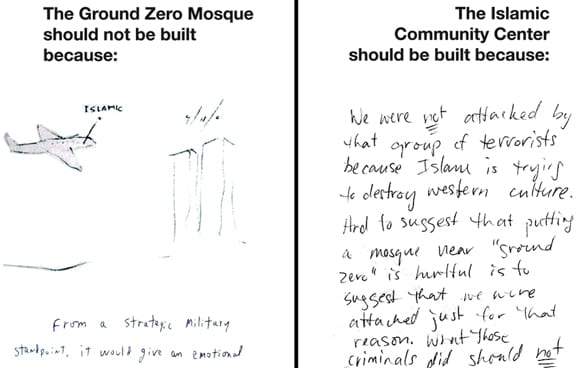 The Ground Zero Mosque
should not be built
because:
ISLAMIC
From a strategic Military
standpoint, it would give an emotional
The Islamic
Community Center
should be built because:
We were not attacked by
that group of terrorists
because Islam is trying
to destroy western culture.
And to suggest that putting
a mosque near "ground
zero" is hurtful is to
suggest that we were
attacked just for that
reason. What those
criminals did should not